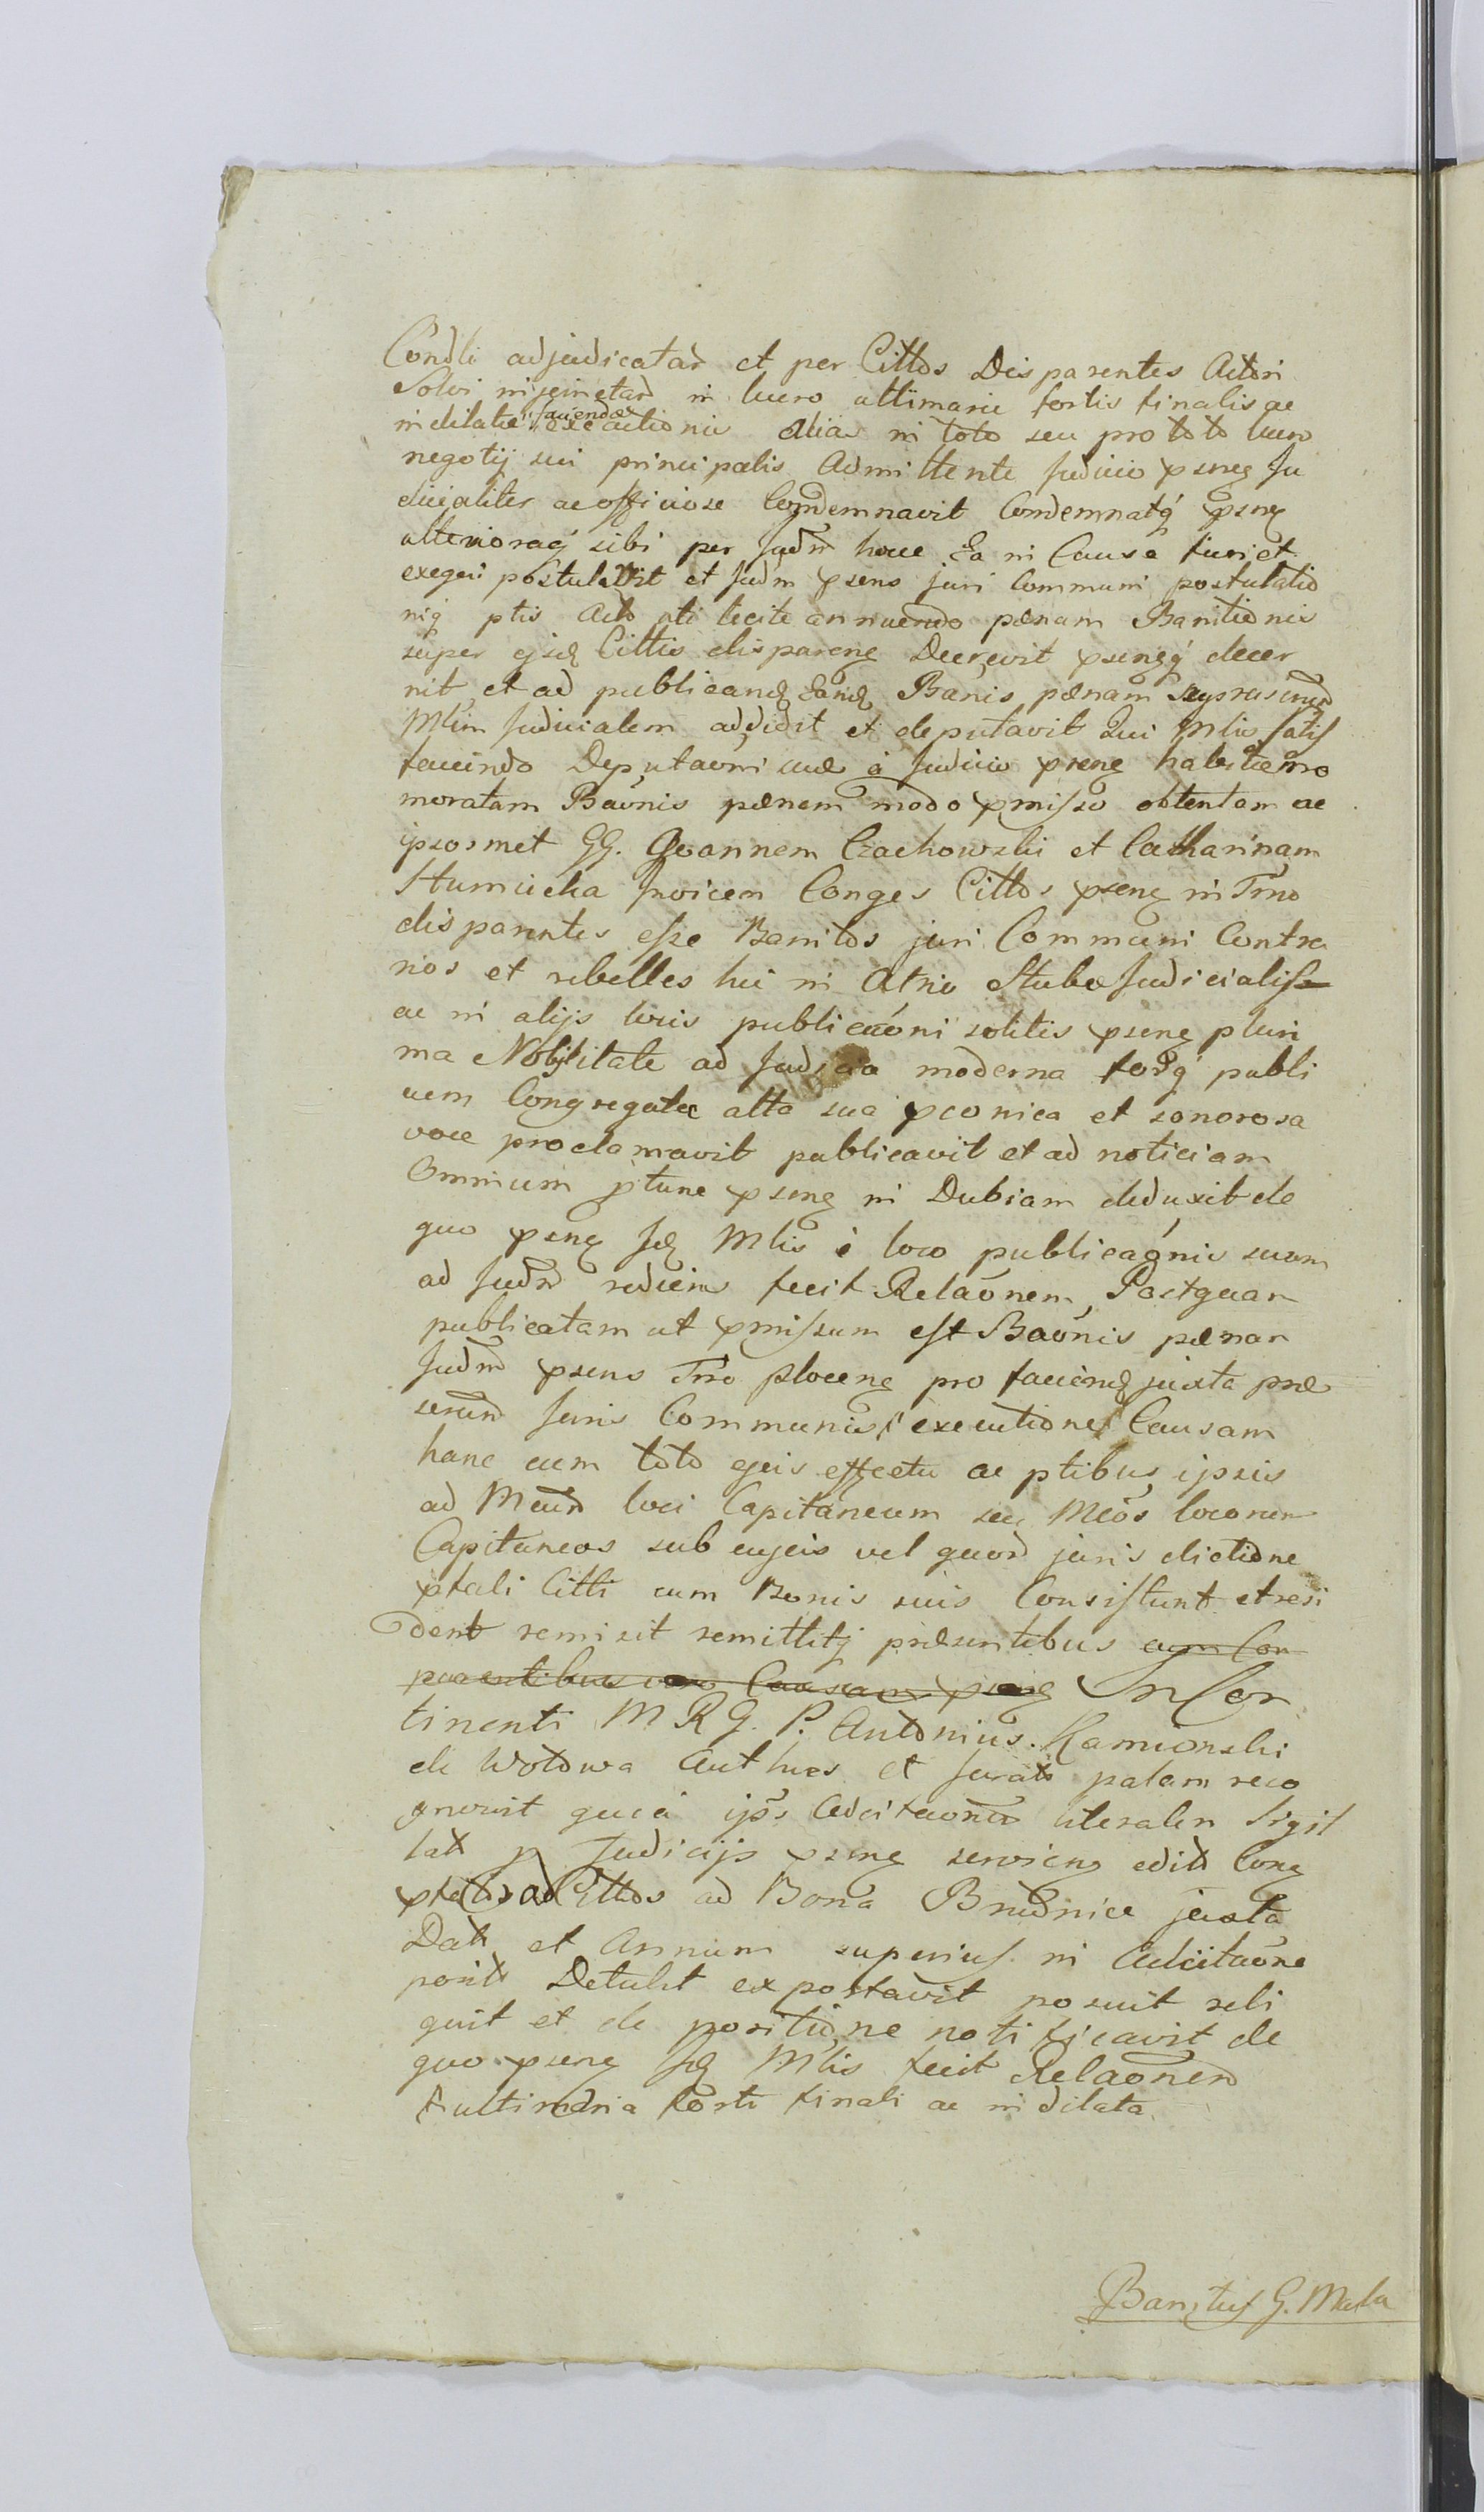 Condli adjudicatar et per Cittos Disparentes Actori
Solvi injunctar in lucro ultimarie fortis finalis ac
indilatae faciendae executionis Alias in toto seu pro toto lucro
negotij sui principalis Admittente Judicio psneg Ju
dicialiter ac officiose Condemnavit Condemnatq psneg
ulterioraq sibi per Judm hocce Ea in Causa fieri et
exegvi postulavit et Judm psens juri Communi postulatio
niq ptis Acto uti licite annuendo pænam Banitionis
super ejsd Cittis dispareng Decrevit psengq decer
nit et ad publicand Eand Banis pænam
Mlem Judicialem addidit et deputavit Qui Mlis satis
faciendo Deputaoni suæ à Judicio pseng habitæ
moratam Baonis pænam modo pmisso obtentam ac
ipsosmet GG. Joannem Czachowski et Catharinam
Invicem Conges Cittos pseng in Tmo
disparentes esse Banitos juri Communi Contra
rios et rebelles hic in Atrio Stubæ Judicialis
ac in alijs locis publicaoni solitis pseng pluri
ma Nobilitate ad Judicia moderna forq publi
cum Congregata alta sua pconica et sonorosa
voce proclamavit publicavit et ad noticiam
Omnium ptunc pseng in Dubiam deduxit de
quo pseng Jd Mlis è loco publicaonis suam
ad Judm rediens fecit Relaonem, Postquam
publicatam ut pmissum est Baonis pænam
Judm psens Trre Ploceng pro faciend juxta præ
scrum Juris Communis executione Causam
hanc cum toto ejus effectu ac ptibus ipsis
ad Mcum loci Capitaneum seu Mcos locorum
Capitaneos sub cujus vel quor juris dictione
ptali Citti cum Bonis suis Consistunt et resi
dent remisit remittitq præsentibus cum Con
parentibus vero Causam pseng In Con
tinenti M R G. P. Antonius Kamionski
de Wotowa Auth et Jurats palam reco
gnovit quia ips Adcitaonem literalem Sigil
lat p Judicijs pseng serviens edito Cong
ptatos ad Cittos ad Bona Brudnice juxta
Dat et Annum superius in Adcitaone
posit Detulit exportavit posuit reli
quit et de positione notificavit de
quo pseng Jd Mlis fecit Relaonem
F ultimaria forti finali ac indilata
Banitus G. Mala